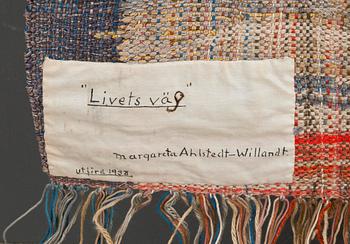 "Livets väg"
Margareta Ahlstedt-Willandt
utförd 1938